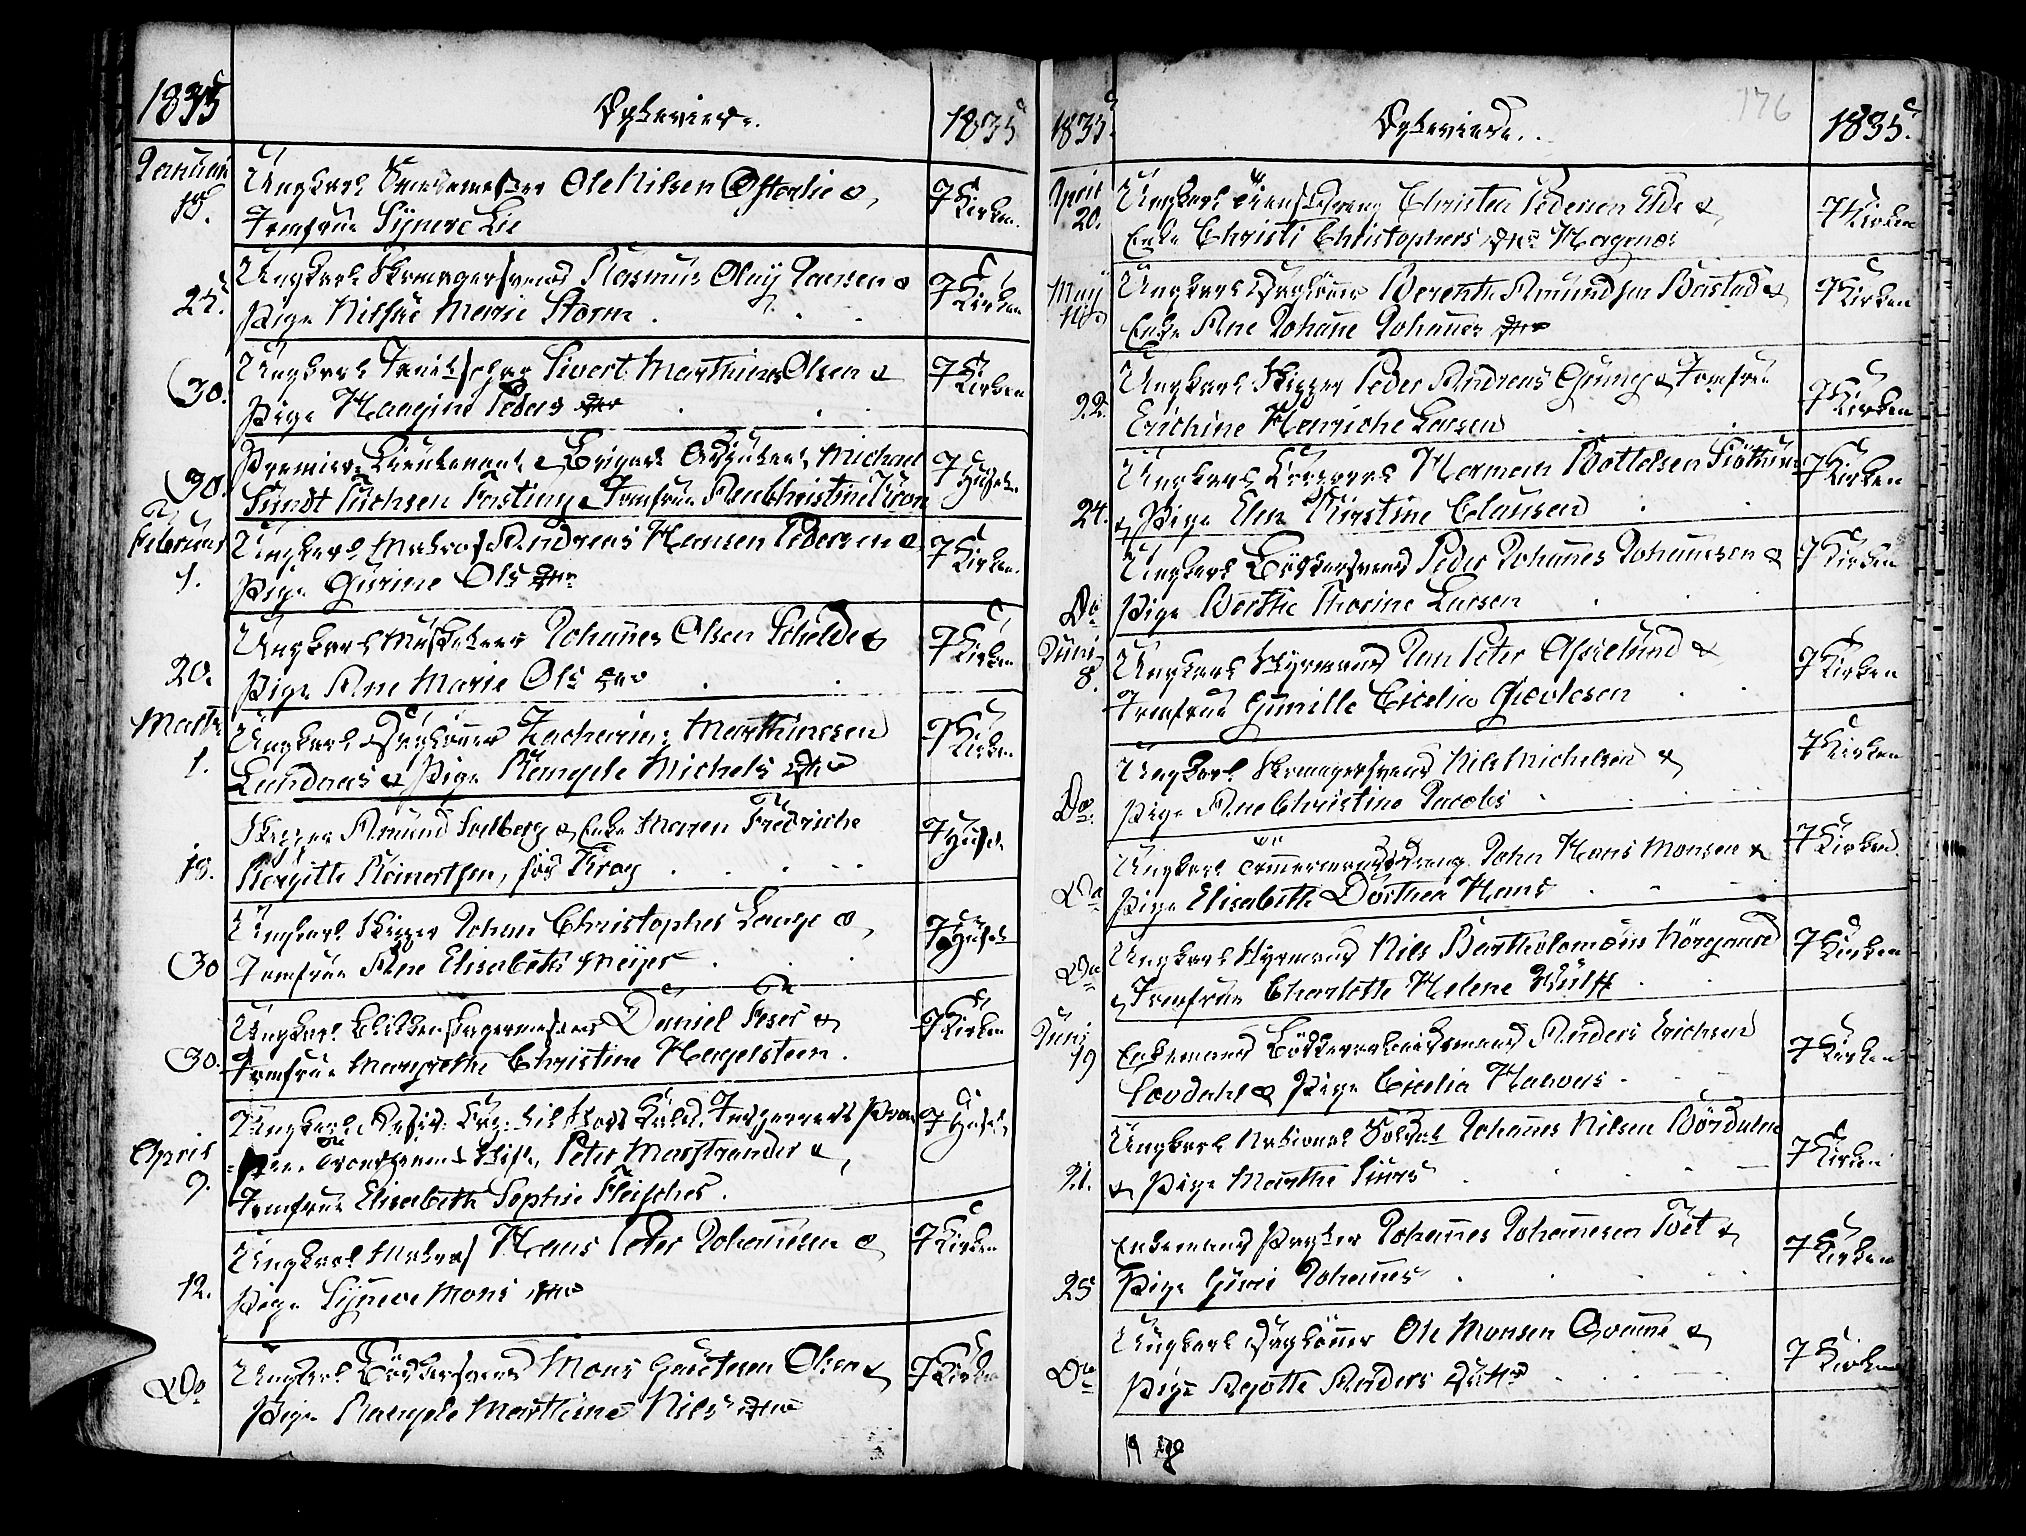 1835
Ægteviede.
1835
Januar
18.
Ungkarl Ole Nilsen Østerlie &
Jomfrue Synneve Lie
I Kirken.
25.
Ungkarl Skomagersvend Rasmus Oluf Jansen &
Pige Nilsine Marie Storm
I Kirken
30.
Ungkarl Sivert Marthinus Olsen &
Pige Haagine Peders Dtr
I Kirken
30.
Premier Lieutenant & Brigade Adjutant Michael
Sundt Tuchsen Fasting & Jomfrue Ane Christine Kron
I Huset
Februar
1.
Ungkarl Matros Andreas Hansen Pedersen &
Pige Gurine Ols Dtr
I Kirken.
20.
Ungkarl Musketeer Johannes Olsen Schelde &
Pige Ane Marie Ols Dtr
I Kirken
Martz
1.
Ungkarl Daglønner Zacharias Marthinssen
Lundnæs & Pige Rangele Michels Dtr
I Kirken
18.
Skipper Amund Solberg & Enke Maren Fredriche
Birgitte Reinertsen, fød Krog
I Huset
30
Ungkarl Skipper Johan Christopher Lange &
Jomfrue Ane Elisabeth Meijer
I Huset
30.
Ungkarl Blikkenslagermester Daniel Peser &
Jomfrue Margrethe Christine Hagelsteen.
I Kirken
April
9.
Ungkarl Resid: Cap: til Præste
Peter Marstrander &
Jomfrue Elisabeth Sophie Fleischer.
I Huset
12.
Ungkarl Matros Hans Peter Johannesen &
Pige Synneve Mons Dtr
I Kirken
Do
Ungkarl Bødkersvend Mons Gutormsen Olsen &
Pige Rangele Marthine Nils Dtr
I Kirken
1835
Ægteviede.
176
1835.
April
20.
Ungkarl Tienestedreng Christen Pedersen Eide &
Enke Christi Christophers Dtr Hagenæs
I Kirken
May
10.
Ungkarl Daglønner Berent Amundsen Bastad &
Enke Ane Johanne Johannes Dtr
I Kirken
22.
Ungkarl Skipper Peder Andreas Gunng & Jomfrue
Erichine Henriche Larsen
I Kirken
24.
Ungkarl Herman Bottelsen Siøthun
& Pige Elen Kirstine Clausen
I Kirken
Do
Ungkarl Bødkersvend Peder Johannes Johannesen &
Pige Berthe Thorine Larsen
I Kirken
Juni
8.
Ungkarl Styrmand Jan Peter Asselund &
Jomfrue Gunille Cicelia Giertsen
I Kirken
Do.
Ungkarl Skomagersvend Nils Michelsen &
Pige Ane Christine Jacobs
I Kirken
Do
Ungkarl Tømmermandsdreng John Hans Monsen &
Pige Elisabeth Dorthea Hans
I Kirken.
Do
Ungkarl Styrmand Nils Bartholomæus Nørgaard
& Jomfrue Charlotte Helene Wulff
I Kirken
Juni
19
Enkemand Bødkerarbeidsmand Anders Erichsen
Lovdahl & Pige Cicelia Halvors
I Kirken
21.
Ungkarl National Soldat Johannes Nilsen Børdalen
& Pige Marthe Siurs
I Kirken
25
Enkemand Pagter Johannes Johannesen Toet &
Pige Guri Johannes
I Kirken
Do
Ungkarl Dagløner Ole Monsen Qvamme &
Pige Agotte Anders Datter
I Kirken